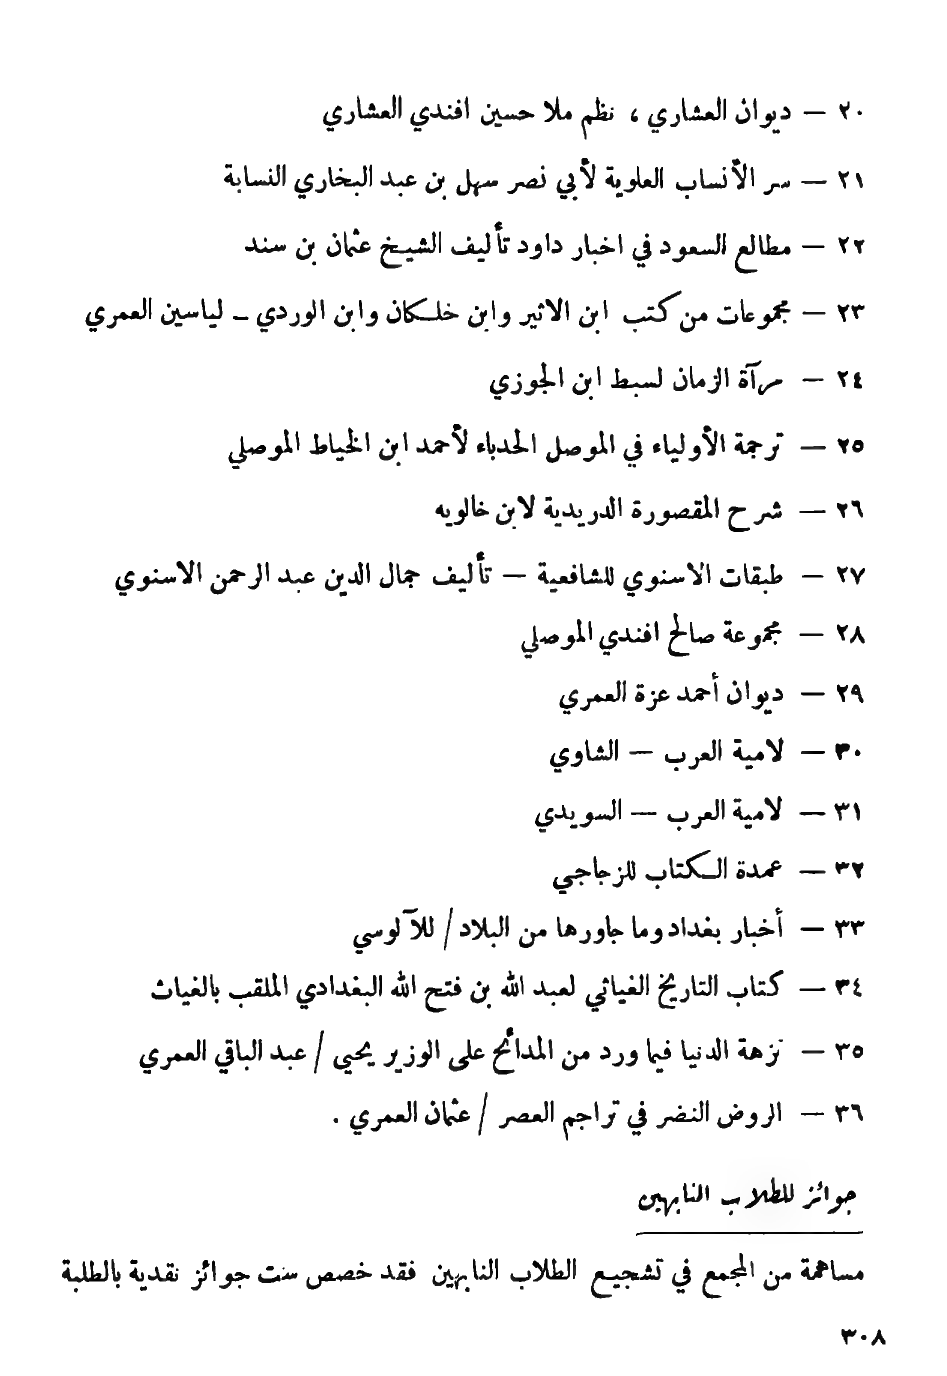 ٢٠ — ديوان العشاري ، نظم ملا حسين افندي العشاري
٢١ — سر الأنساب العلوية لأبي نصر سهل بن عبد البخاري النسابة
٢٢ — مطالع السعود في اخبار داود تأليف الشيخ عثمان بن سند
٢٣ — مجموعات من كتب ابن الاثير وابن خلكان وابن الوردي – لياسين العمري
٢٤ — مرآة الزمان لسبط ابن الجوزي
٢٥ — ترجمة الأولياء في الموصل الحدباء لأحمد ابن الخياط الموصلي
٢٦ — شرح المقصورة الدريدية لابن خالويه
٢٧ — طبقات الاسنوي للشافعية — تأليف جمال الدين عبد الرحمن الاسنوي
٢٨ — مجموعة صالح افندي الموصلي
٢٩ — ديوان أحمد عزة العمري
٣٠ — لامية العرب — الشاوي
٣١ — لامية العرب — السويدي
٣٢ — عمدة الكتاب للزجاجي
٣٣ — أخبار بغداد وما جاورها من البلاد / للآلوسي
٣٤ — كتاب التاريخ الغياثي لعبد الله بن فتح الله البغدادي الملقب بالغياث
٣٥ — نزهة الدنيا فيما ورد من المدائح على الوزير يحيى / عبد الباقي العمري
٣٦ — الروض النضر في تراجم العصر / عثمان العمري .
جوائز للطلاب النابهين
مساهمة من المجمع في تشجيع الطلاب النابهين فقد خصص ست جوائز نقدية بالطلبة
٣٠٨